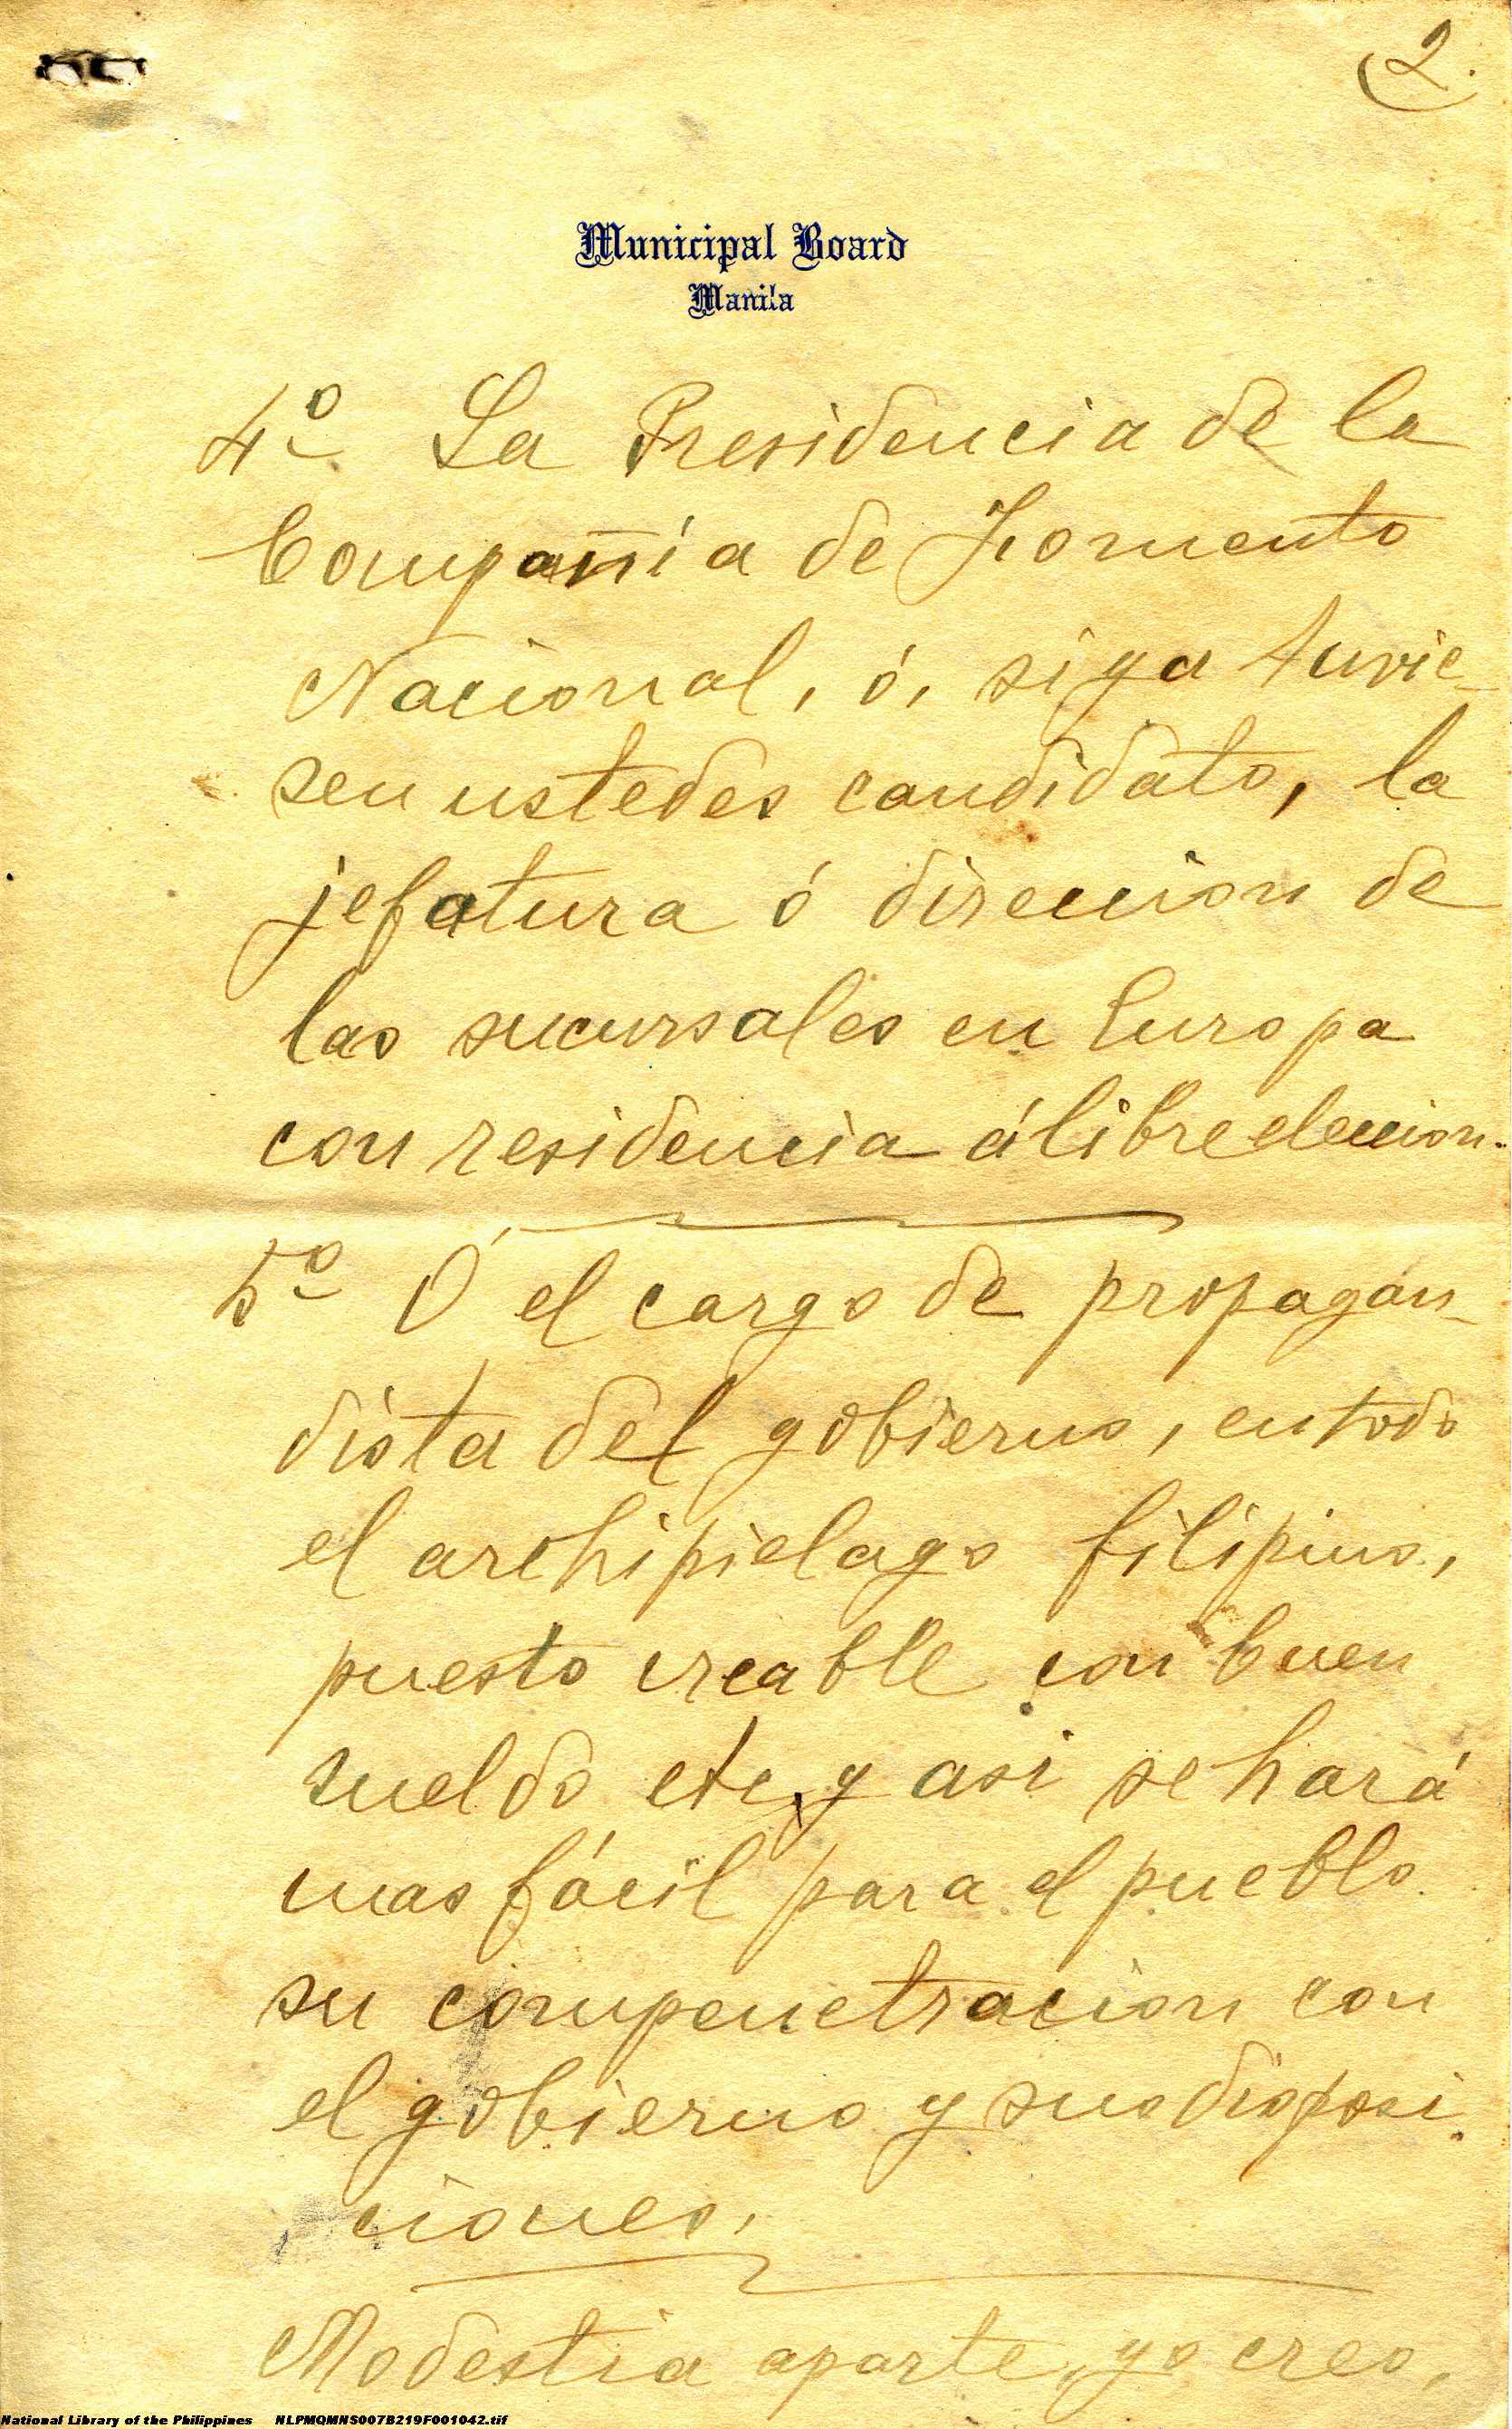 2.
Municipal Board
Manila
4º La Presidencia de la
Compañia de Fomento
Nacional, ó, si ya tuvie-
sen ustedes candidato, la
jefatura ó direccion de
las sucursales en Europa
con residencia á libre eleccion.
5º Ó el cargo de propagan-
dista del gobierno, en todo
el archipielago filipino,
puesto creable con buen
sueldo etc, y asi se hará
mas fácil para el pueblo
su compenetracion con
el gobierno y sus disposi-
ciones.
Modestia aparte, yo creo,
National Library of the Philippines NLPMQMNS007B219F001042.tif